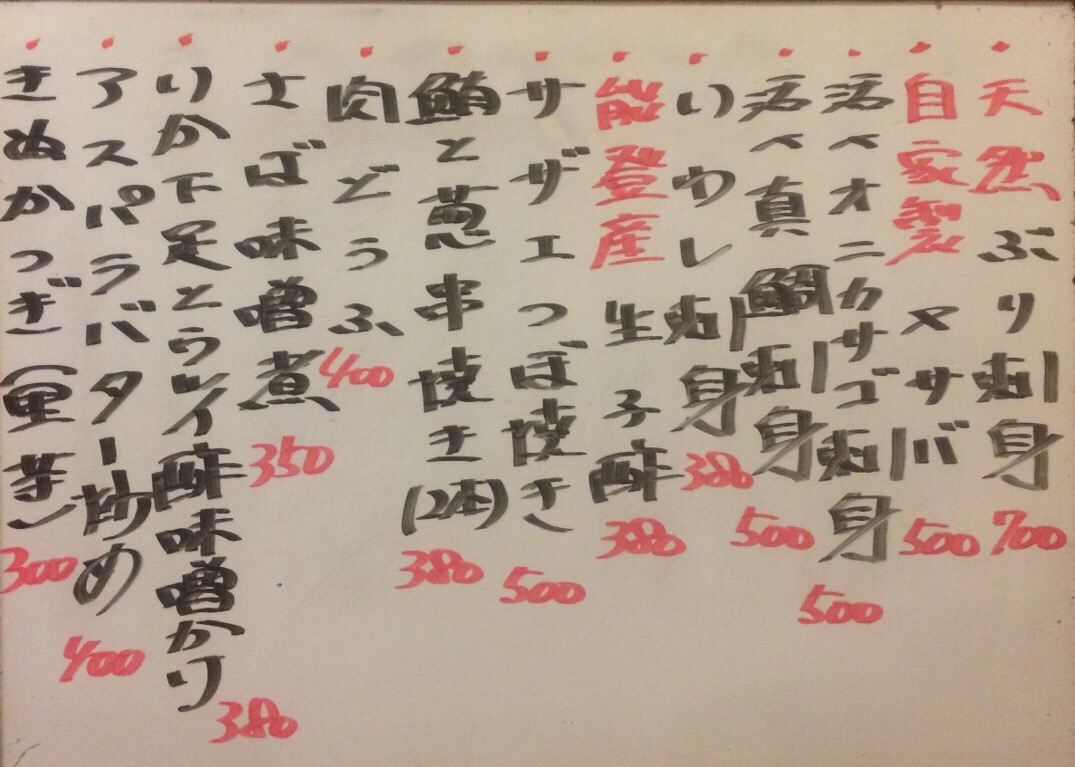 天然ぶり刺身 700
自家製〆サバ 500
活〆オニカサゴ刺身 500
活〆真鯛刺身 500
いわし刺身 380
能登産生子酢 380
サザエつぼ焼き 500
鮪と葱串焼き(2本) 380
肉どうふ 400
さば味噌煮 350
いか下足とうレイ酢味噌かけ 380
アスパラバター炒め 400
きぬかつぎ(里芋) 300